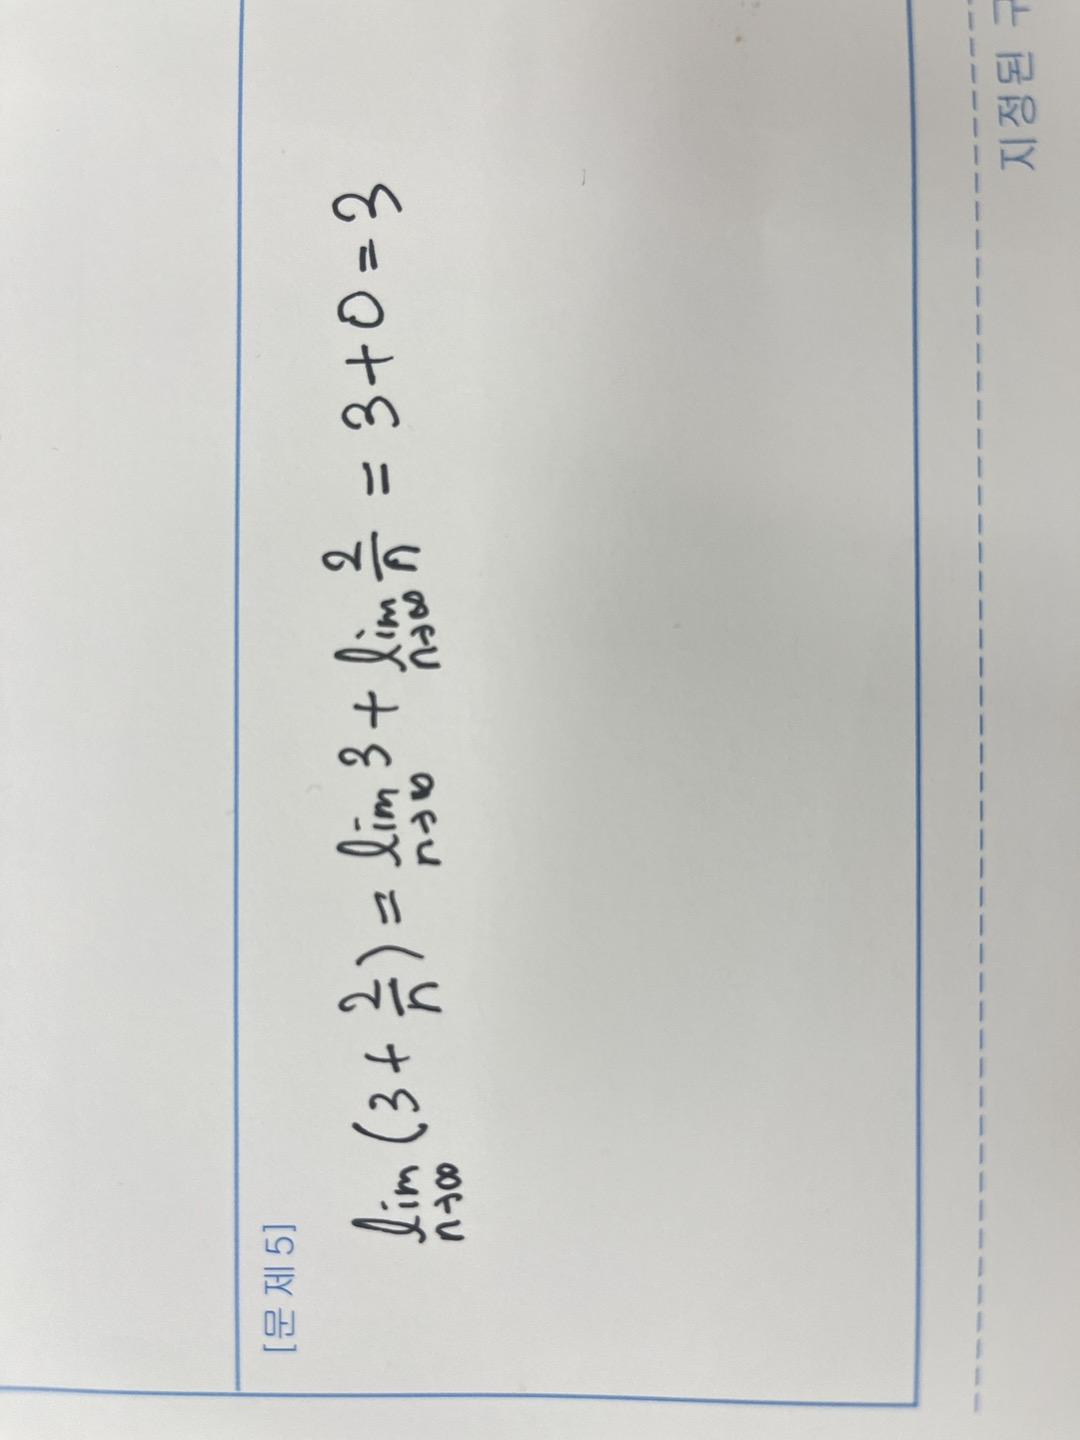 [문제 5]
lim n→∞ (3 + 2/n) = lim n→∞ 3 + lim n→∞ 2/n = 3 + 0 = 3
지정된